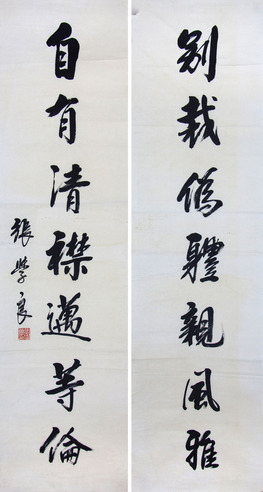 别裁偽體親風雅
自有清襟邁等倫
張學良